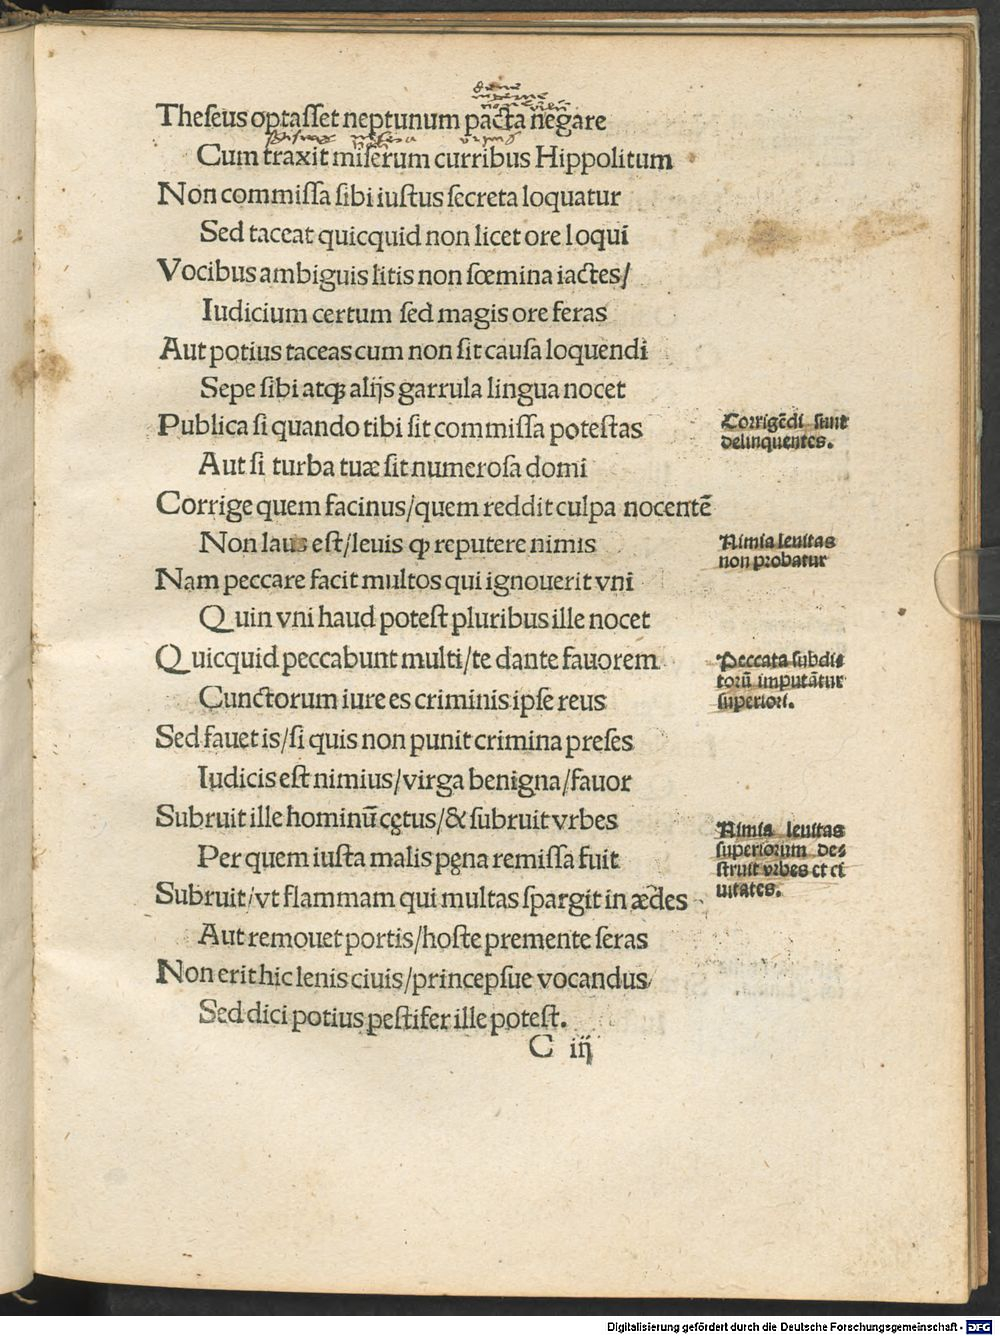 Theseus optasset neptunum pacta negare
Cum traxit miserum curribus Hippolitum
Non commissa sibi iustus secreta loquatur
Sed taceat quicquid non licet ore loqui
Vocibus ambiguis litis non fœmina iactes/
Iudicium certum sed magis ore feras
Aut potius taceas cum non sit causa loquendi
Sepe sibi atqꝫ alijs garrula lingua nocet
Publica si quando tibi sit commissa potestas
Corrigẽdi sunt
delinquentes.
Aut si turba tuæ sit numerosa domi
Corrige quem facinus/quem reddit culpa nocentẽ
Non laus est/leuis ꝙ reputere nimis
Nimia lenitas
non probatur
Nam peccare facit multos qui ignouerit vni
Quin vni haud potest pluribus ille nocet
Quicquid peccabunt multi/te dante fauorem
Peccata subdi⸗
torũ imputãtur
superiori.
Cunctorum iure es criminis ipse reus
Sed fauet is/si quis non punit crimina preses
Iudicis est nimius/virga benigna/fauor
Subruit ille hominũ cętus/& subruit vrbes
Nimia lenitas
superiorum de⸗
struit vrbes et ci
uitates.
Per quem iusta malis pęna remissa fuit
Subruit/vt flammam qui multas spargit in ædes
Aut remouet portis/hoste premente seras
Non erit hic lenis ciuis/princepsue vocandus/
Sed dici potius pestifer ille potest.
C iij
Digitalisierung gefördert durch die Deutsche Forschungsgemeinschaft - DFG